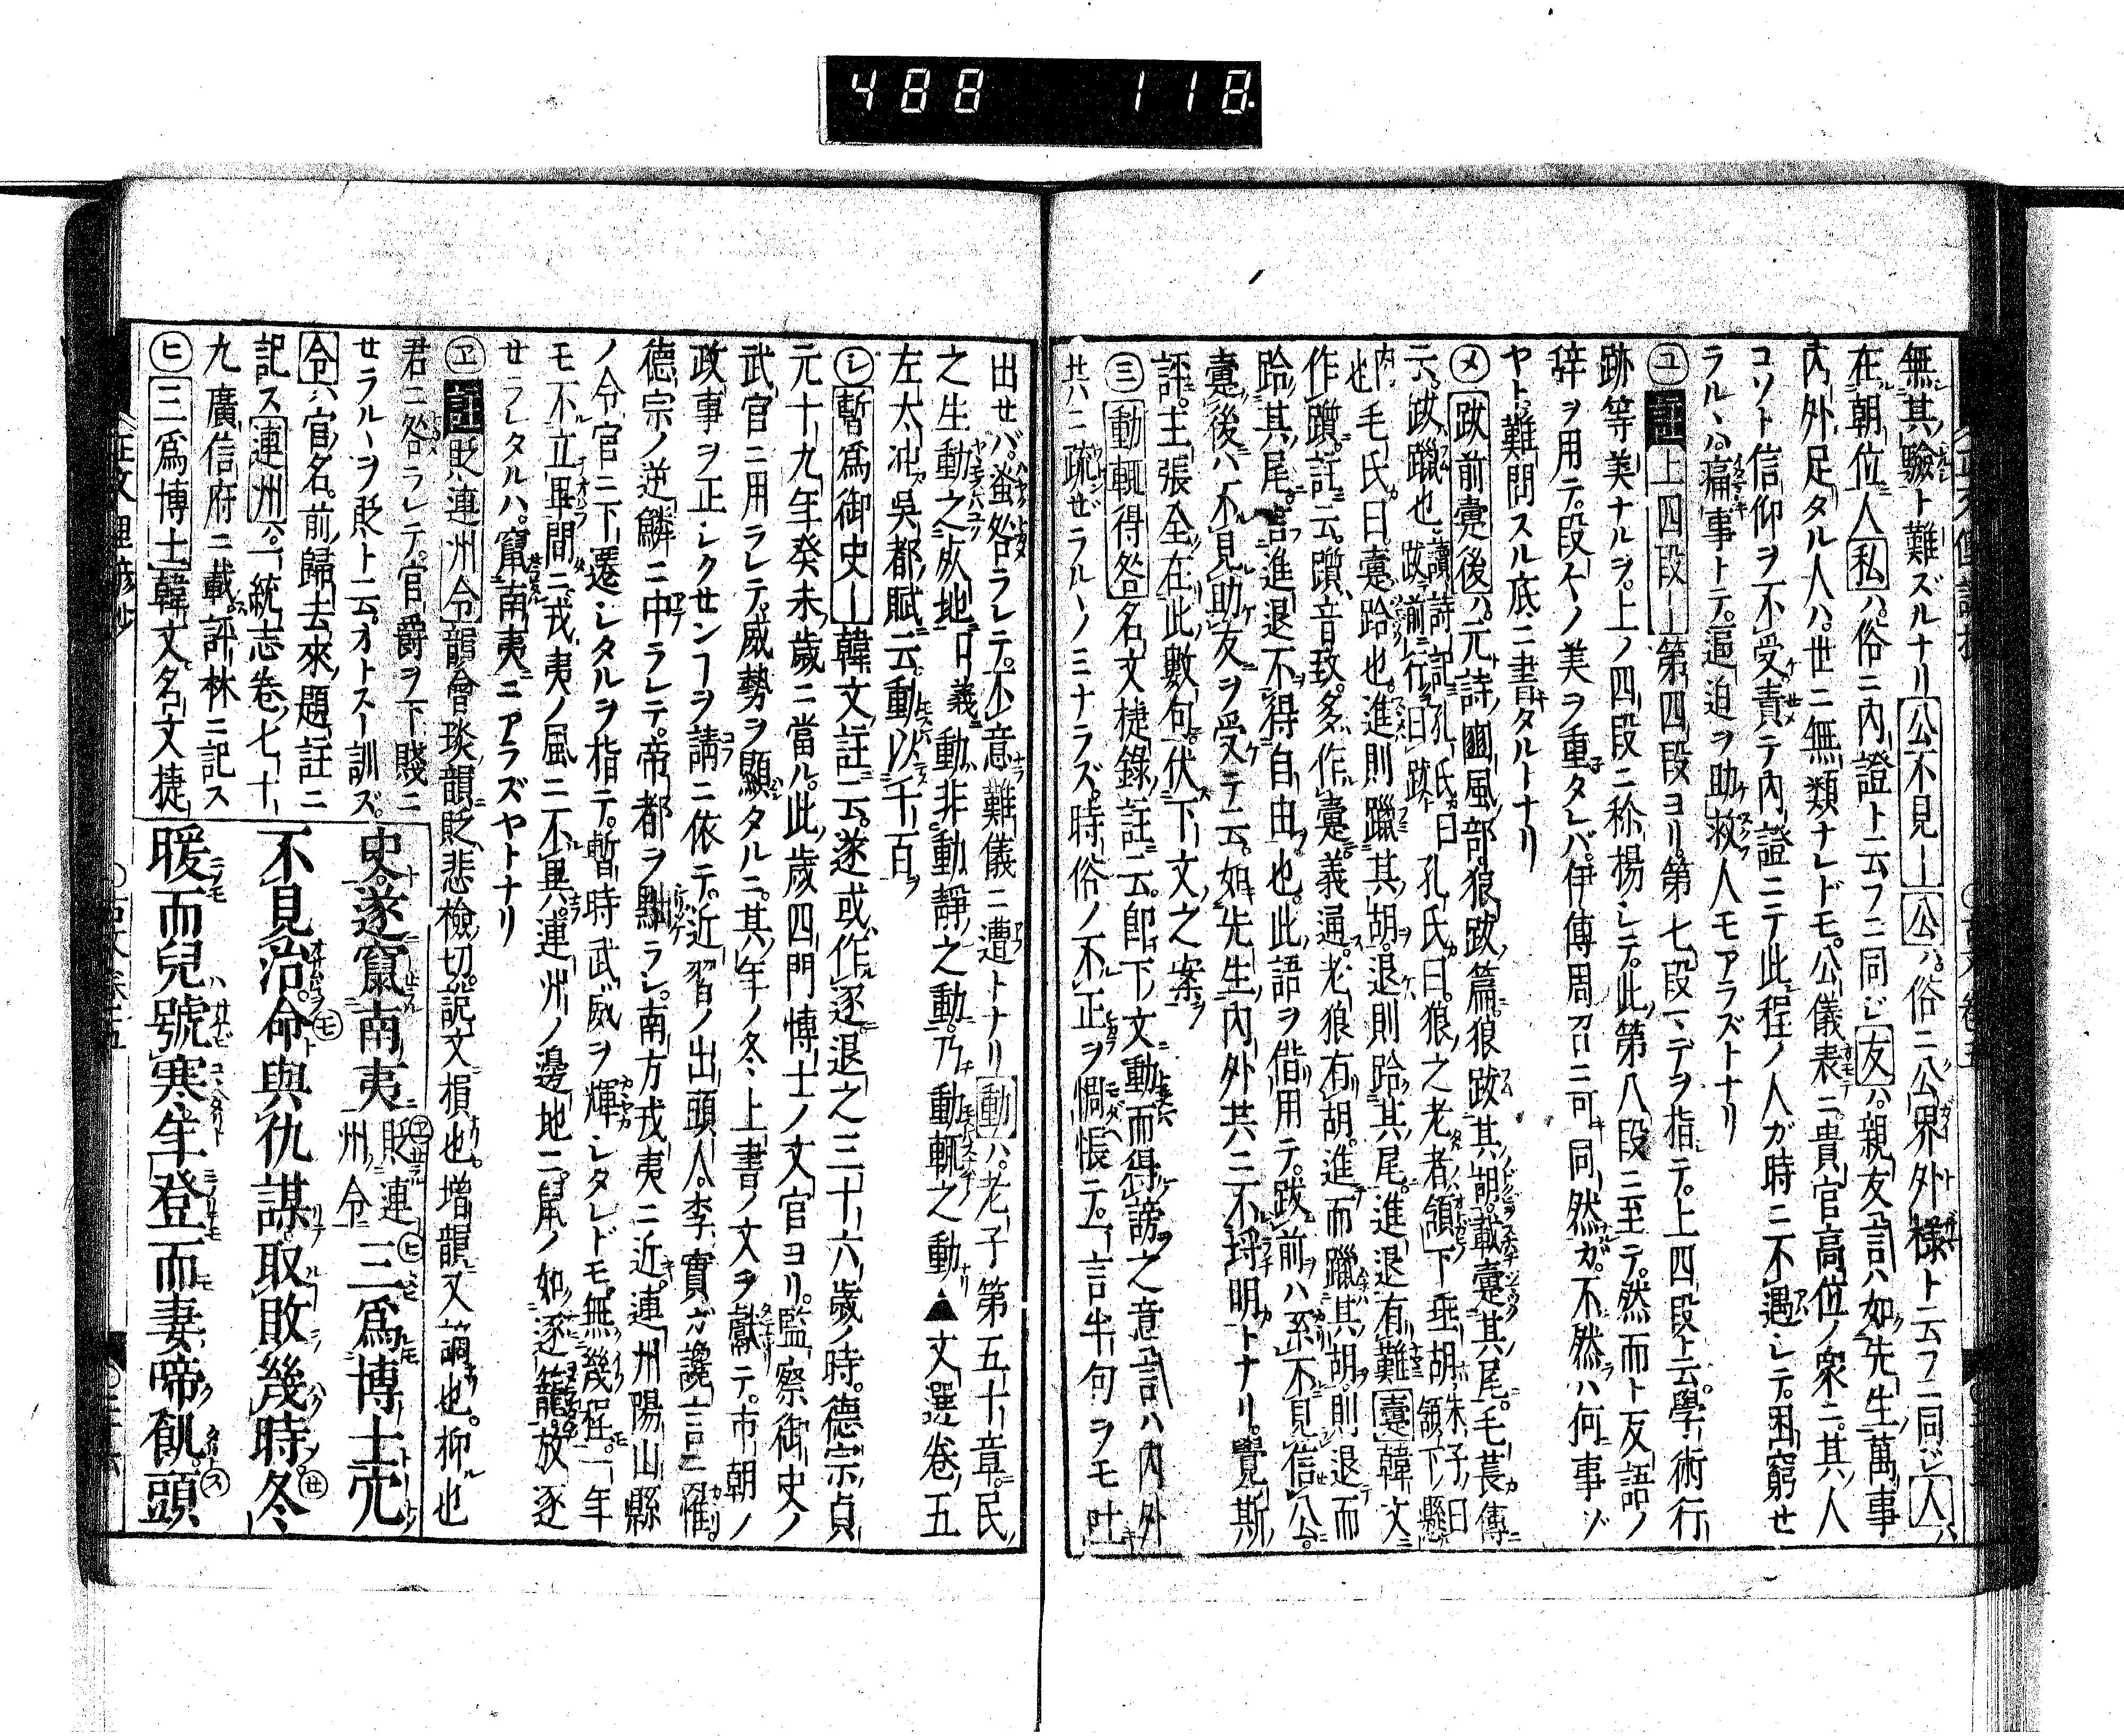 488 118
無其驗ト難ズルナリ公不見ー公ハ俗ニ公界外樣ト云フニ同ジ人ハ
在朝位人私ハ俗ニ內證ト云フニ同ジ友ハ親友言ハ如先生萬事
內外足タル人ハ世ニ無類ナレドモ公儀表ニ貴官高位ノ衆ニ其人
コソト信仰ヲ不受責テ內證ニテ此程ノ人ガ時ニ不遇シテ困窮セ
ラルヽハ痛事トテ逼迫ヲ助救人モアラズトナリ
ユ 註 上四段ー第四段ヨリ第七段マデヲ指テ上四段ト云學術行
跡等美ナルヲ上ノ四段ニ称揚シテ此第八段ニ至テ然而ト友語ノ
辞ヲ用テ段々ノ美ヲ重タレバ伊傳周召ニ可同然カ不然ハ何事ゾ
ヤト難問スル底ニ書タルトナリ
メ 跋前疐後ハ元詩豳風部狼跋篇狼跋其胡載疐其尾毛萇傳
云跋躐也讀詩記孔氏曰跋前行曰跋孔氏曰狼之老者頷下垂胡朱子曰胡頷下懸
肉也毛氏曰疐跲也進則躐其胡退則跲其尾進退有難疐韓文
作躓註云躓音致多作疐義通老狼有胡進而躐其胡則退而
跲其尾言進退不得自由也此語ヲ借用テ跋前ハ系不見信公
疐後ハ不見助友ヲ受テ云如先生內外共ニ不埒明トナリ覺斯
評主張全在此數句伏下文之案
ミ 動輒得咎名文捷錄註云即下文動而得謗之意言ハ內外
共ニ疏ゼラルヽノミナラズ時俗ノ不正ヲ惆悵テ一言半句ヲモ吐
出セバ咎ラレテ不意難儀ニ遭トナリ動ハ老子第五十章民
之生動之死地口義動非動靜之動乃動輒之動▲文選卷五
左太冲吳都賦云動以千百
シ 暫爲御史ー韓文註云遂或作逐退之三十六歲ノ時德宗貞
元十九年癸未歲ニ當ル此歲四門博士ノ文官ヨリ監察御史ノ
武官ニ用ラレテ威勢ヲ顯タルニ其年ノ冬上書ノ文ヲ獻テ市朝ノ
政事ヲ正シクセンヿヲ請ニ依テ近習ノ出頭人李實ガ讒言ニ罹
德宗ノ逆鱗ニ中ラレテ帝都ヲ黜ラレ南方戎夷ニ近連州陽山縣
ノ令官ニ下遷シタルヲ指テ暫時武威ヲ輝シタレドモ無幾程一年
モ不立再間ニ戎夷ノ風ニ不異連州ノ邊地ニ鼠ノ如逐籠放逐
セラレタルハ竄南夷ニアラズヤトナリ
ヱ 註 貶連州令韻會琰韻貶悲檢切說文損也增韻又謫也抑也
君ニ咎ラレテ官爵ヲ下賤ニ
セラルヽヲ貶ト云オトスー訓ズ
令ハ官名前歸去來題註ニ
記ス連州ハ一統志卷七十
九廣信府ニ載評林ニ記ス
ヒ 三爲博士韓文名文捷
史遂竄南夷貶連州令三爲博士冗
不見治命與仇謀取敗幾時冬
暖而兒號寒年登而妻啼飢頭